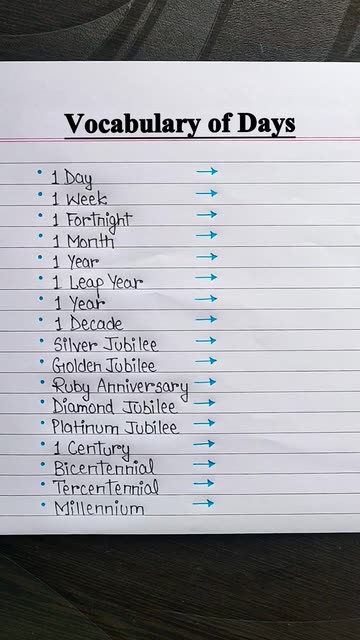 Vocabulary of Days
• 1 Day →
• 1 Week →
• 1 Fortnight →
• 1 Month →
• 1 Year →
• 1 Leap Year →
• 1 Year →
• 1 Decade →
• Silver Jubilee →
• Golden Jubilee →
• Ruby Anniversary →
• Diamond Jubilee →
• Platinum Jubilee →
• 1 Century →
• Bicentennial →
• Tercentennial →
• Millennium →